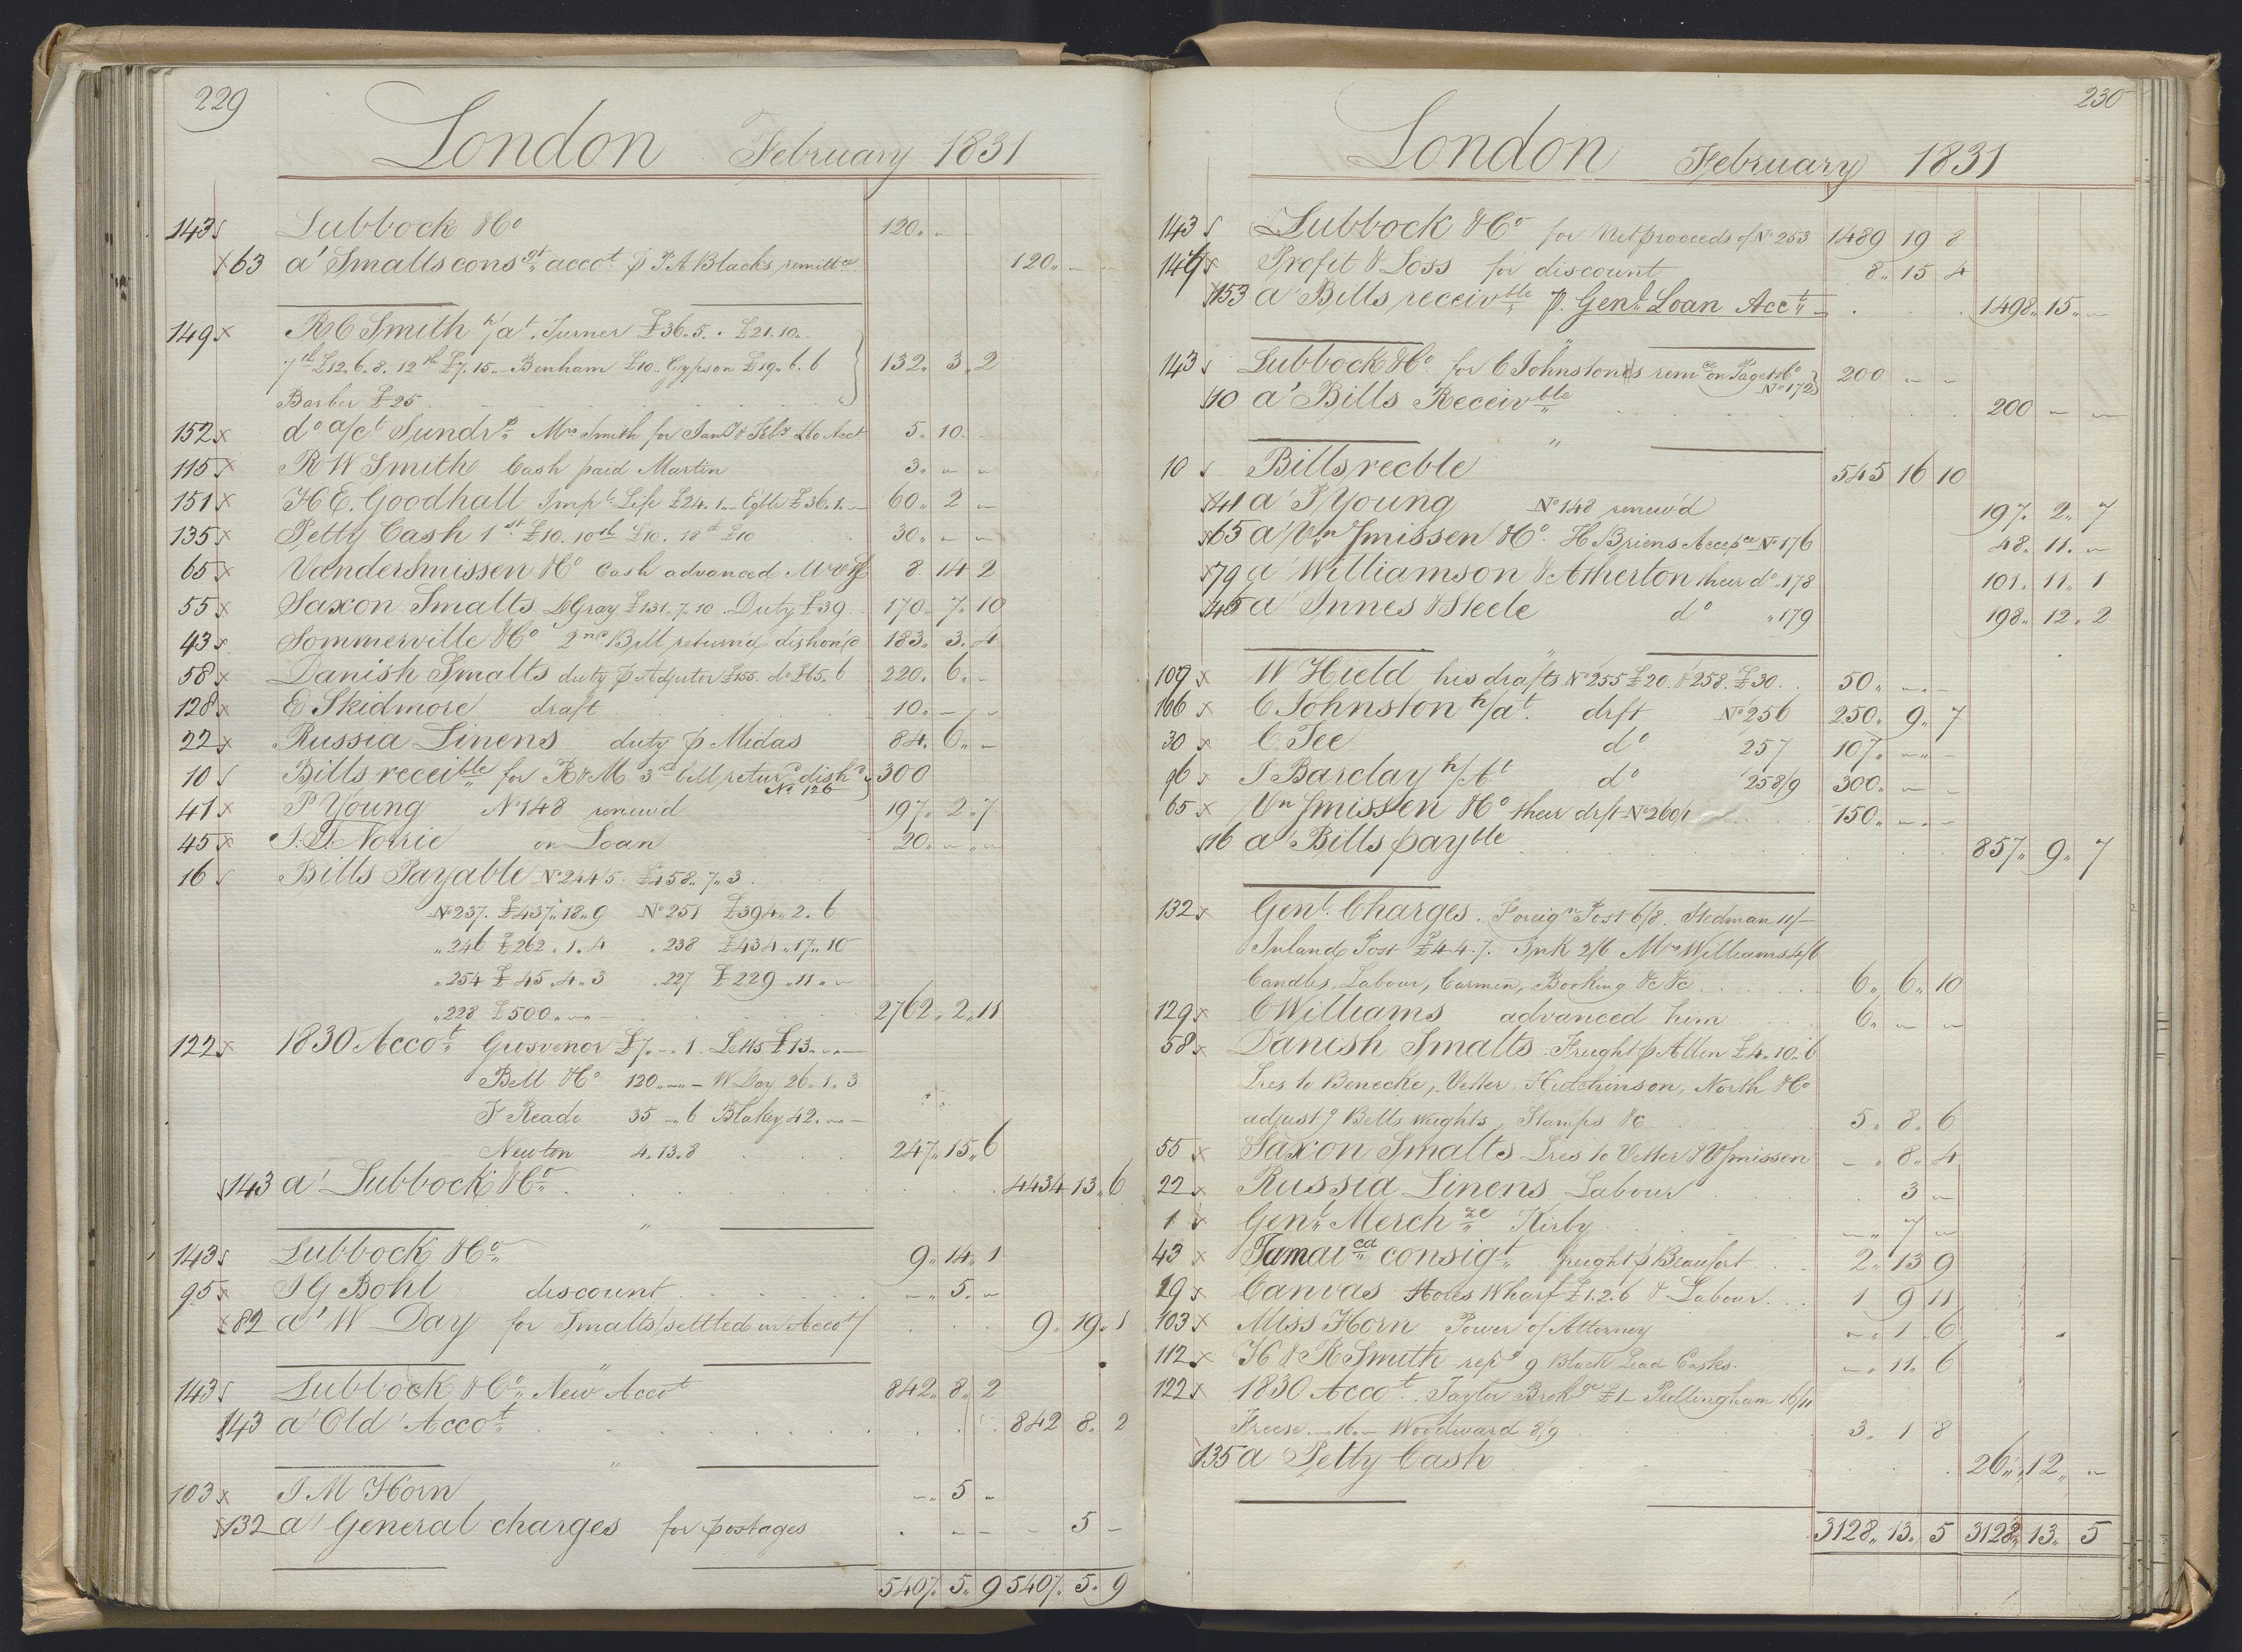 229
London February 1831
143 Lubbock & Co 120 " -
63 a' Smalts consgt accot p P A Blacks remittce 120 " - -
149 R C Smith p/at Turner £36.5. . £21.10
7th £12.6.8. 12th £7.15.- Benham £10. Gypson £19.6.6 132. 3. 2
Barber £25
152 do a/ct Sundrs Mrs Smith for Jany & Feby Acct 5. 10. -
115 R W Smith Cash paid Martin 3. - -
151 H E. Goodhall Impl Life £24.1.- Eqble £36.1.- 60. 2 -
135 Petty Cash 1st £10. 10th £10. 18th £10 30. - -
65 VanderSmissen & Co Cash advanced 8. 14 2
55 Saxon Smalts DeGray £131.7.10. Duty £39 170. 7. 10
43 Sommerville & Co 2nd Bill returnd dishon'd 183. 3. 4
58 Danish Smalts duty p Adjutor £155. do £65.6 220. 6. -
128 E Skidmore draft 10. - -
22 Russia Linens duty p Midas 84. 6 " -
10 Bills receible for R & M 3rd bill returd dishd No 126 300
41 P Young No 148 renew'd 197. 2. 7
45 J. J. Norrie on Loan 20. - -
16 Bills Payable No 244/5. £458. 7. 3
No 237. £437.18.9 No 251 £394.2.6
" 246 £262.1.4 " 238 £434.17.10
" 254 £45.4.3 " 227 £229.11.-
" 228 £500.-.- 2762. 2. 11
122 1830 Accot Grosvenor £7.-.1. Letts £13.-.-
Bell & Co 120.-.- W Day 26.1.3
F Reade 35 - 6 Blakey 42.-.-
Newton 4.13.8 247. 15. 6
143 a' Lubbock & Co 4434 13. 6
143 Lubbock & Co 9. 14. 1
95 J G Bohl discount - 5. -
82 a' W Day for Smalts settled in Accot 9. 19. 1
143 Lubbock & Co New Accot 842. 8. 2
143 a' Old Accot 842 8. 2
103 J M Horn - 5 -
132 a' General charges for postages - 5 -
5407. 5. 9 5407. 5. 9
230
London February 1831
143 Lubbock & Co for Netproceeds of No 253 1489 19 8
149 Profit & Loss for discount 8. 15 4
153 a' Bills receivble p. Genl Loan Acct 1498. 15. -
143 Lubbock & Co for C Johnstones remce on Paget & Co No 172 200 - -
10 a' Bills Receivble 200 - -
10 Bills recble 545 16 10
41 a' P Young No 148 renew'd 197. 2. 7
65 a' Vn Smissen & Co. H Briens Accepce No 176 48. 11. -
79 a' Williamson & Atherton their do " 178 101. 11. 1
45 a' Innes & Steele do " 179 198. 12. 2
109 W Hield his drafts No 255 £20. & 258. £30. 50. - -
166 C Johnston p/at. drft No 256 250. 9. 7
30 C Tee do 257 107. - -
96 J Barclay p/At do 258/9 300. - -
65 Vn Smissen & Co their drft No 260/1 150. - -
16 a' Bills payble 857. 9. 7
132 Genl. Charges. Foreign Post 6/8. Stedman 11/-
Inland Post £4.4.7. Ink 2/6 Mrs Williams 4/6
Candles, Labour, Carmen, Booking &c &c 6. 6. 10
129 C Williams advanced him 6. - -
58 Danish Smalts. Freight p Allen £4.10.6
Lres to Benecke, Vetter, Hutchinson, North & Co
adjustg Bells weights, Stamps &c 5. 8. 6
55 Saxon Smalts Lres to Vetter & VSmissen - 8. 4
22 Russia Linens Labour 3 -
1 Genl Merchze Kirby - 7 -
43 Jamaica consigt freight p Beaufort 2. 13 9
19 Canvas Hores Wharf £1.2.6 & Labour 1 9 11
103 Miss Horn Power of Attorney - 1. 6
112 H & R Smith repg 9 Black Lead Casks. - 11. 6
122 1830 Accot. Taylor Brokge £1.- Pedlingham 16/11
Freese - 16.- Woodward 8/9 3. 1 8
135 a Petty Cash 26. 12. -
3128. 13. 5 3128. 13. 5